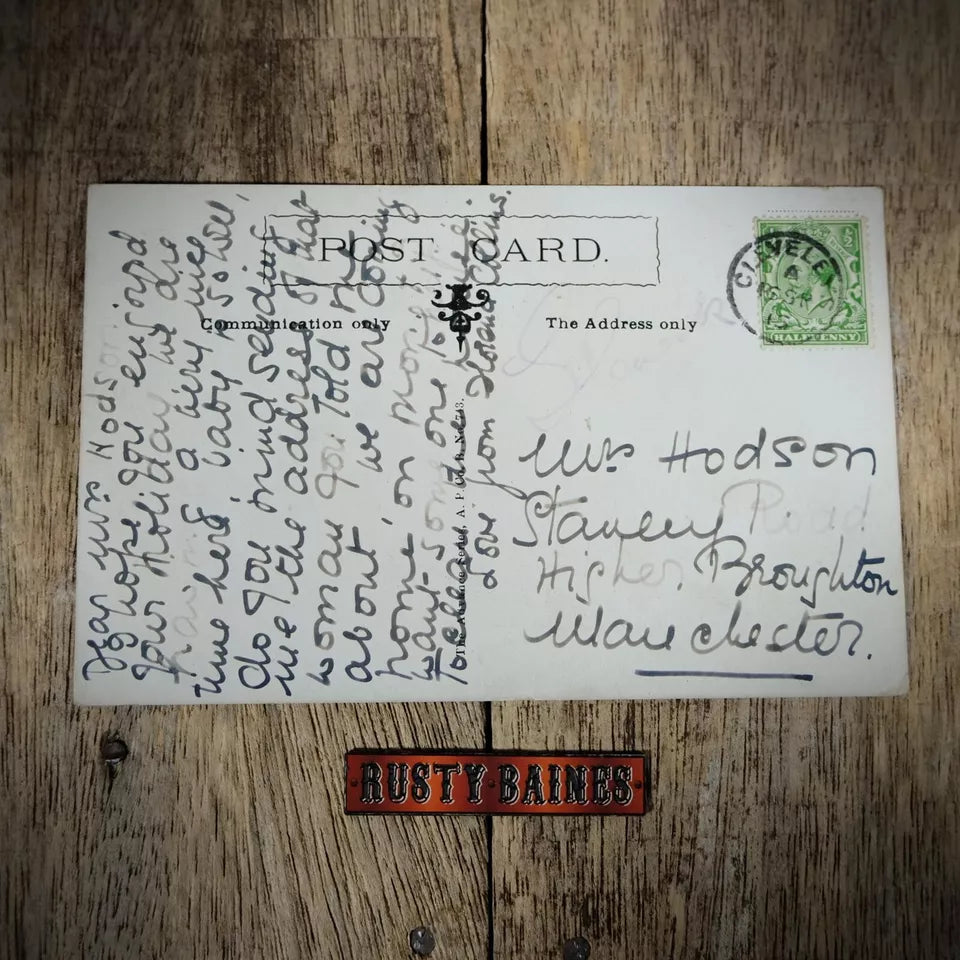 POST CARD.
Communication only
The Address only
Dear Mrs Hodson
I hope you enjoyed
your Holiday we are
having a very nice
time here baby is so well,
do you mind sending
me the address of that
woman you told me
about we are coming
home on
want some one to
Love from
Mrs Hodson
Stanley Road
Higher Broughton
Manchester.
CLEVELEY
½
HALFPENNY
RUSTY BAINES